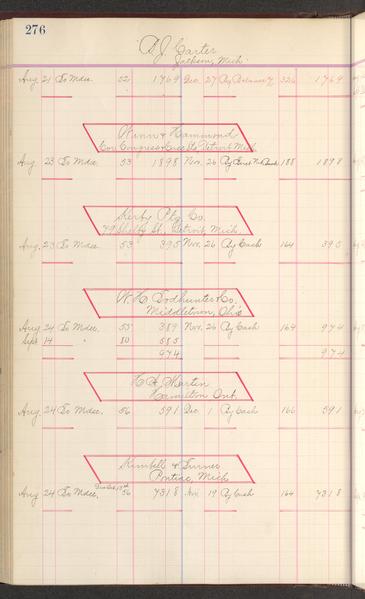 276
D. J. Carter
Jackson, Mich
Aug 21 To Mdse. 52 17 69 Dec. 27 By Balance 326 17 69
Winn & Hammond
Cor Congress & Cass Sts Detroit Mich
Aug 23 To Mdse. 53 18 98 Nov. 26 By 188 18 98
Kerby Ptg Co.
79 Shelby St., Detroit, Mich.
Aug. 23 To Mdse. 53 3 95 Nov. 26 By Cash 164 3 95
W. H. Todhunter & Co.
Middletown, Ohio
Aug 24 To Mdse. 55 3 89 Nov. 26 By Cash 164 9 74
Sept 14 " 80 5 85
9 74 9 74
H. A. Martin
Hamilton Ont.
Aug. 24 To Mdse. 56 5 91 Dec. 1 By Cash 166 5 91
Kimbell & Turner
Pontiac, Mich
Aug 24 To Mdse. 56 73 18 Nov. 19 By Cash 164 73 18